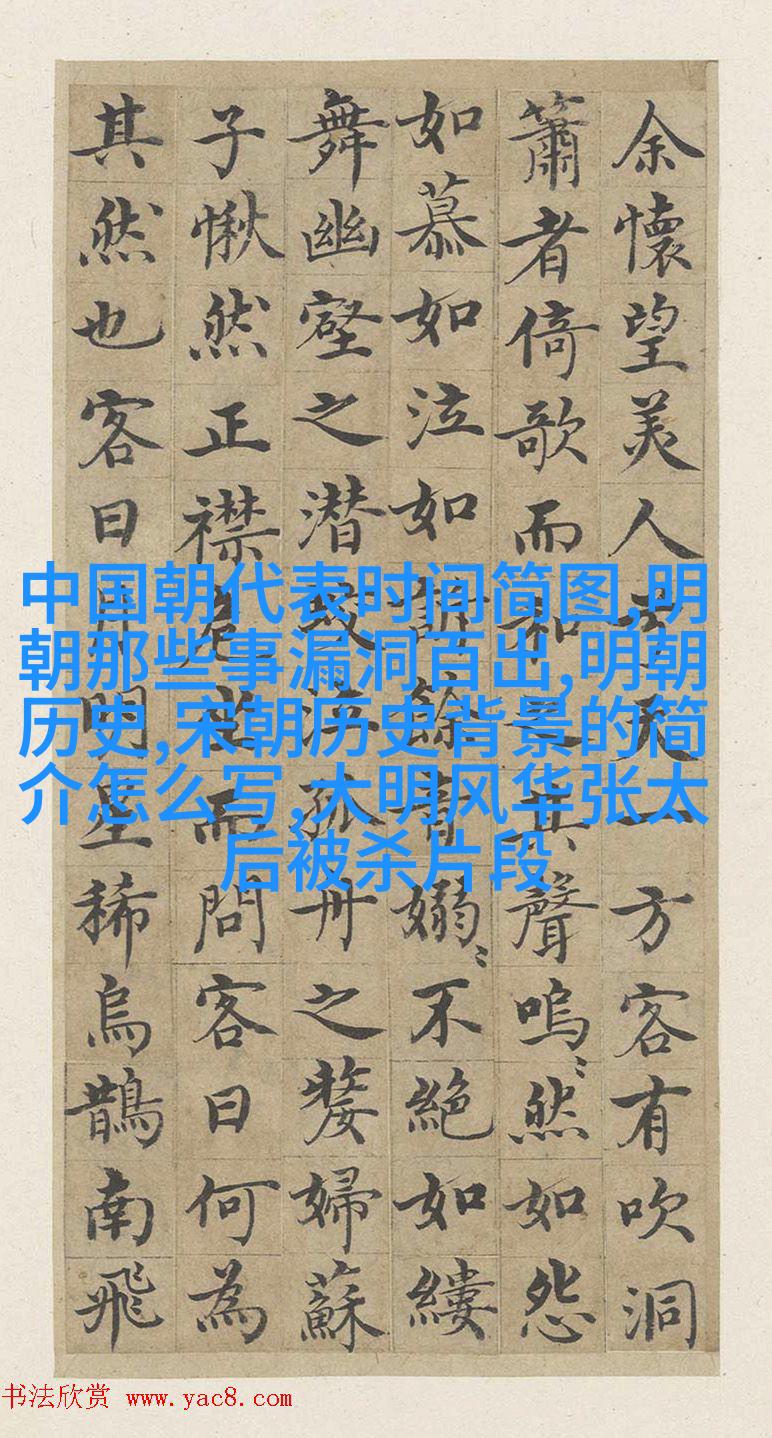 余懷望美人兮天一方客有吹洞
簫者倚歌而和之其聲嗚〻然如怨
如慕如泣如訴餘音嫋〻不絕如縷
舞幽壑之潛蛟泣孤舟之嫠婦蘇
子愀然正襟危坐而問客曰何為
其然也客曰月明星稀烏鵲南飛
中国朝代表时间简图,明
朝那些事漏洞百出,明朝
历史,宋朝历史背景的简
介怎么写,大明风华张太
后被杀片段
书法欣赏 www.yac8.com